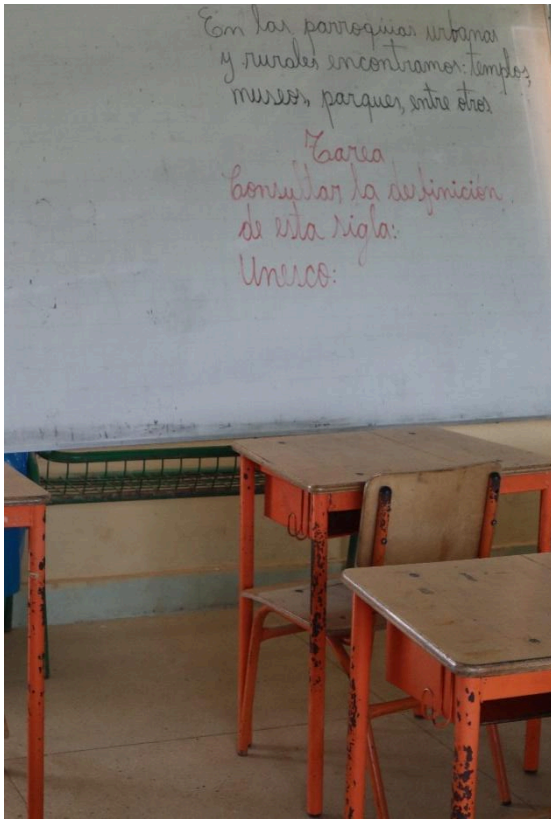 En las parroquias urbanas
y rurales encontramos: templos,
museos, parques, entre otros
Tarea
Consultar la definición
de esta sigla:
Unesco: